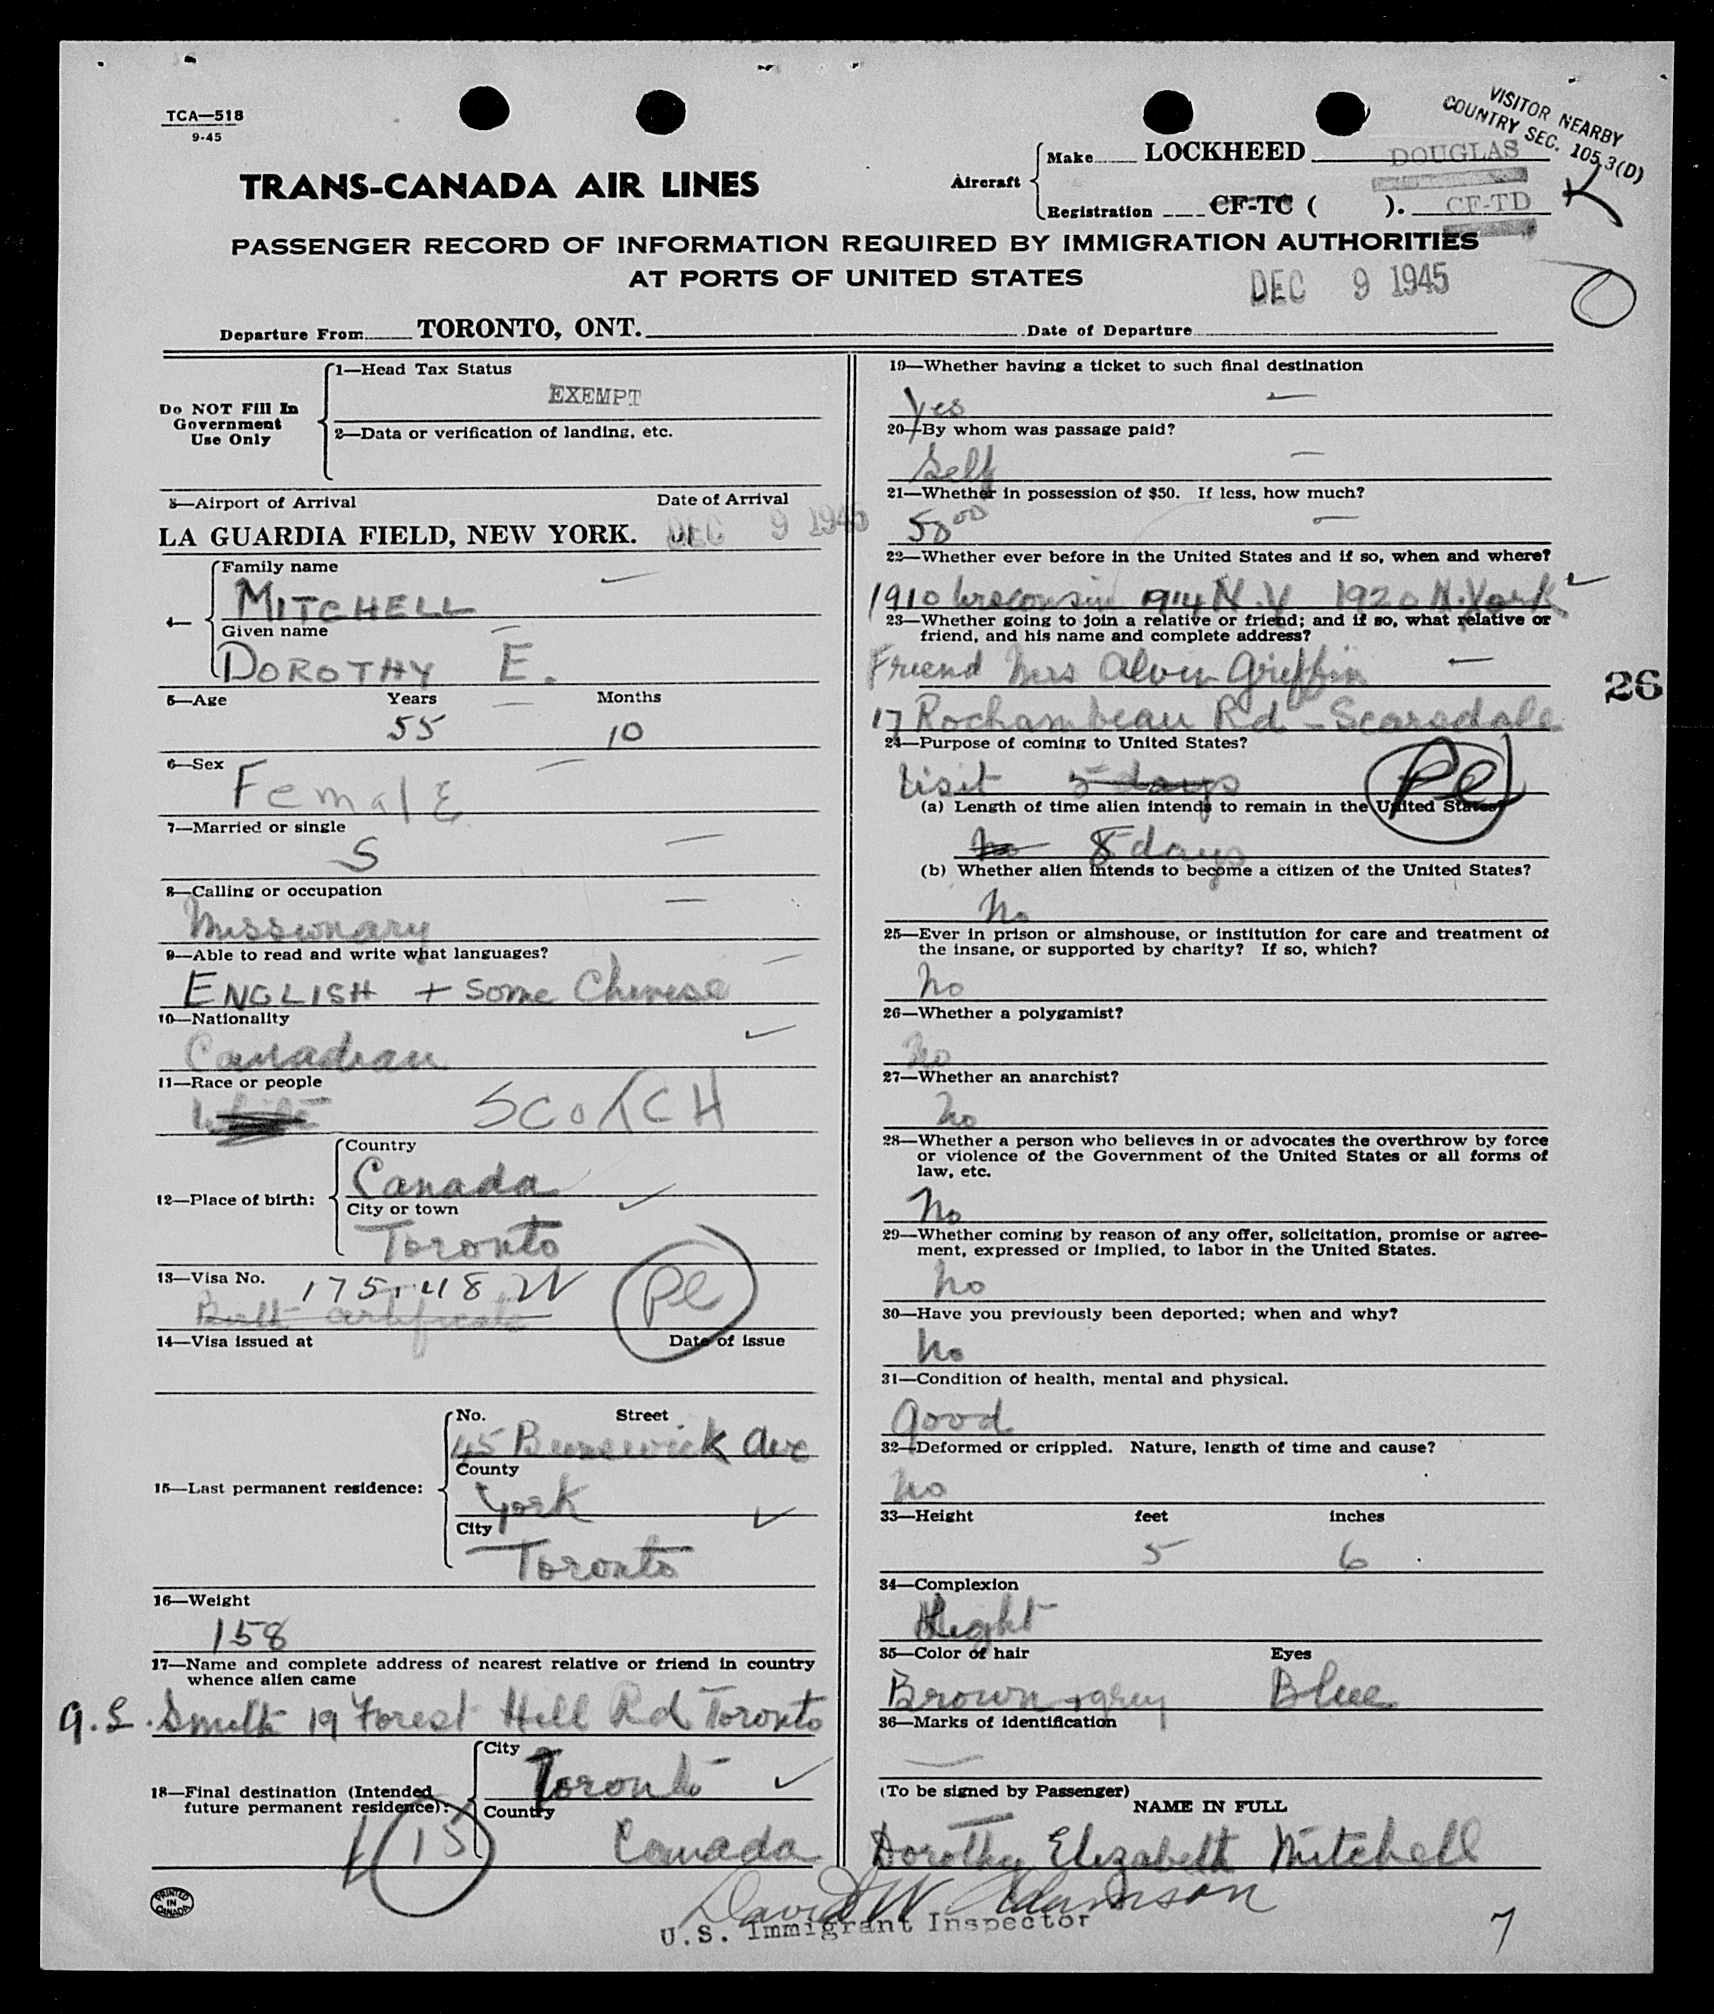 TCA—518
9-45
VISITOR NEARBY
COUNTRY SEC. 105.3(D)
TRANS-CANADA AIR LINES
Aircraft
Make LOCKHEED DOUGLAS
Registration CF-TC ( ). CF-TD
K
PASSENGER RECORD OF INFORMATION REQUIRED BY IMMIGRATION AUTHORITIES
AT PORTS OF UNITED STATES
DEC 9 1945
Departure From TORONTO, ONT. Date of Departure
Do NOT Fill In
Government
Use Only
1—Head Tax Status
EXEMPT
2—Data or verification of landing, etc.
3—Airport of Arrival Date of Arrival
LA GUARDIA FIELD, NEW YORK. DEC 9 1945
4—
Family name
MITCHELL
Given name
DOROTHY E.
5—Age Years Months
55 10
6—Sex
FemalE
7—Married or single
S
8—Calling or occupation
Missionary
9—Able to read and write what languages?
ENGLISH + Some Chinese
10—Nationality
Canadian
11—Race or people
White SCOTCH
12—Place of birth:
Country
Canada
City or town
Toronto
13—Visa No. 175-48
Birth Certificate
Pl
14—Visa issued at Date of issue
15—Last permanent residence:
No. Street
45 Brunswick Ave
County
York
City
Toronto
16—Weight
158
17—Name and complete address of nearest relative or friend in country
whence alien came
G.E. Smith 19 Forest Hill Rd Toronto
18—Final destination (Intended
future permanent residence):
City
Toronto
Country
Canada
15
PRINTED
IN
CANADA
19—Whether having a ticket to such final destination
Yes
20—By whom was passage paid?
Self
21—Whether in possession of $50. If less, how much?
50 00
22—Whether ever before in the United States and if so, when and where?
1910 Wisconsin 1914 N.Y 1920 N.York
23—Whether going to join a relative or friend; and if so, what relative or
friend, and his name and complete address?
Friend Mrs Alvin Griffin
26
17 Rochambeau Rd - Scarsdale
24—Purpose of coming to United States?
Visit 5 days
Pl
(a) Length of time alien intends to remain in the United States?
no 8 days
(b) Whether alien intends to become a citizen of the United States?
No
25—Ever in prison or almshouse, or institution for care and treatment of
the insane, or supported by charity? If so, which?
No
26—Whether a polygamist?
No
27—Whether an anarchist?
No
28—Whether a person who believes in or advocates the overthrow by force
or violence of the Government of the United States or all forms of
law, etc.
No
29—Whether coming by reason of any offer, solicitation, promise or agree-
ment, expressed or implied, to labor in the United States.
No
30—Have you previously been deported; when and why?
No
31—Condition of health, mental and physical.
Good
32—Deformed or crippled. Nature, length of time and cause?
No
33—Height feet inches
5 6
34—Complexion
Light
35—Color of hair Eyes
Brown + grey Blue
36—Marks of identification
(To be signed by Passenger)
NAME IN FULL
Dorothy Elizabeth Mitchell
David W Adamson
U.S. Immigrant Inspector
7